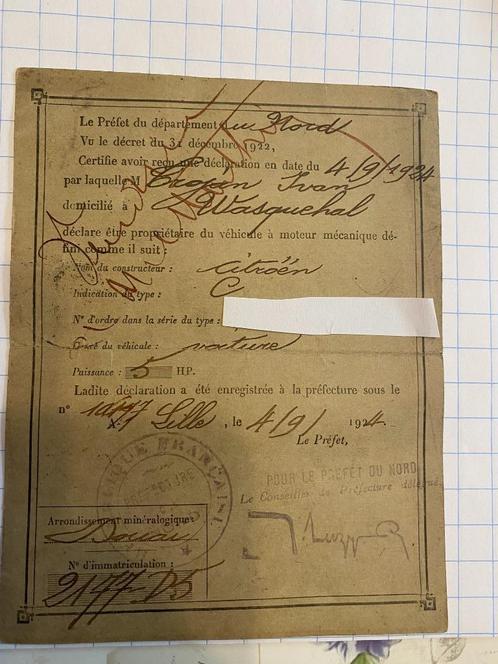 Le Préfet du département du Nord
Vu le décret du 31 décembre 1922,
Certifie avoir reçu une déclaration en date du 4/9/1924
par laquelle M Ivan
domicilié à Wasquehal
déclare être propriétaire du véhicule à moteur mécanique dé-
fini comme il suit :
Nom du constructeur : Citroën
Indication du type : C
N° d'ordre dans la série du type :
Genre du véhicule : voiture
Puissance : 5 HP.
Ladite déclaration a été enregistrée à la préfecture sous le
n°
A Lille, le 4/9/ 1924.
Le Préfet,
POUR LE PRÉFET DU NORD
Le Conseiller de Préfecture délégué,
Arrondissement minéralogique :
Douai
N° d'immatriculation :
2177-D5